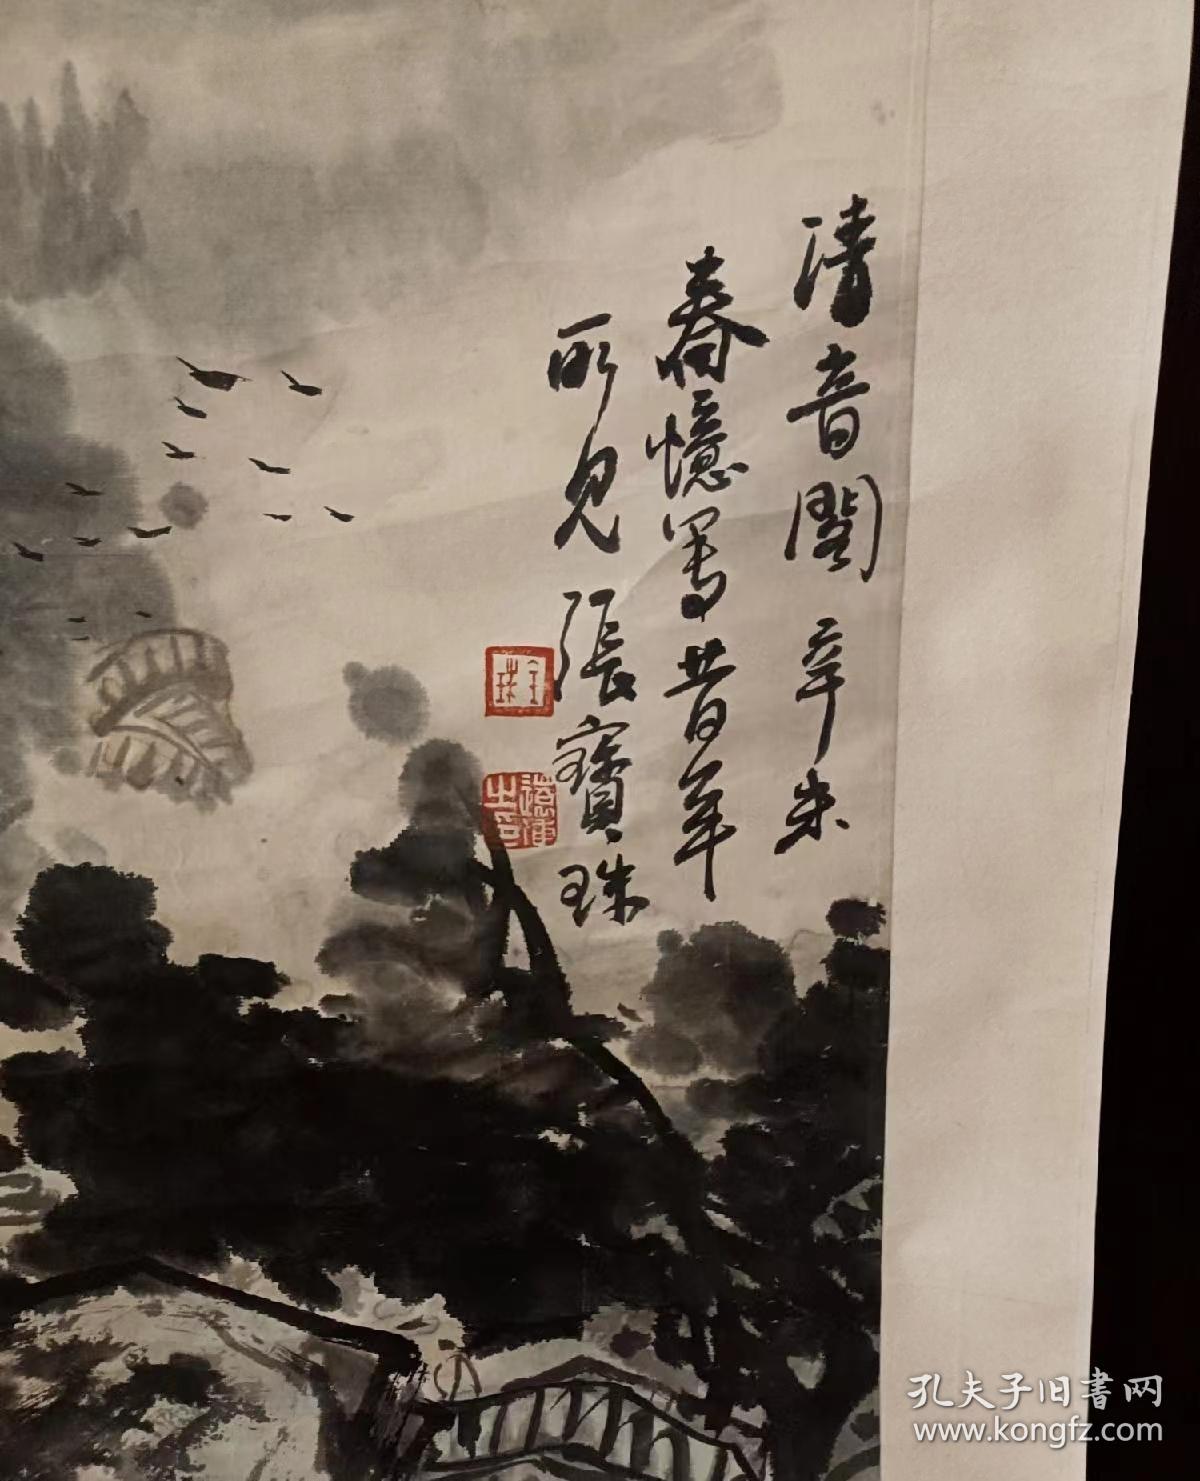 清音閣 辛未
春 憶寫昔年
所見 張寶珠
孔夫子旧書网
www.kongfz.com